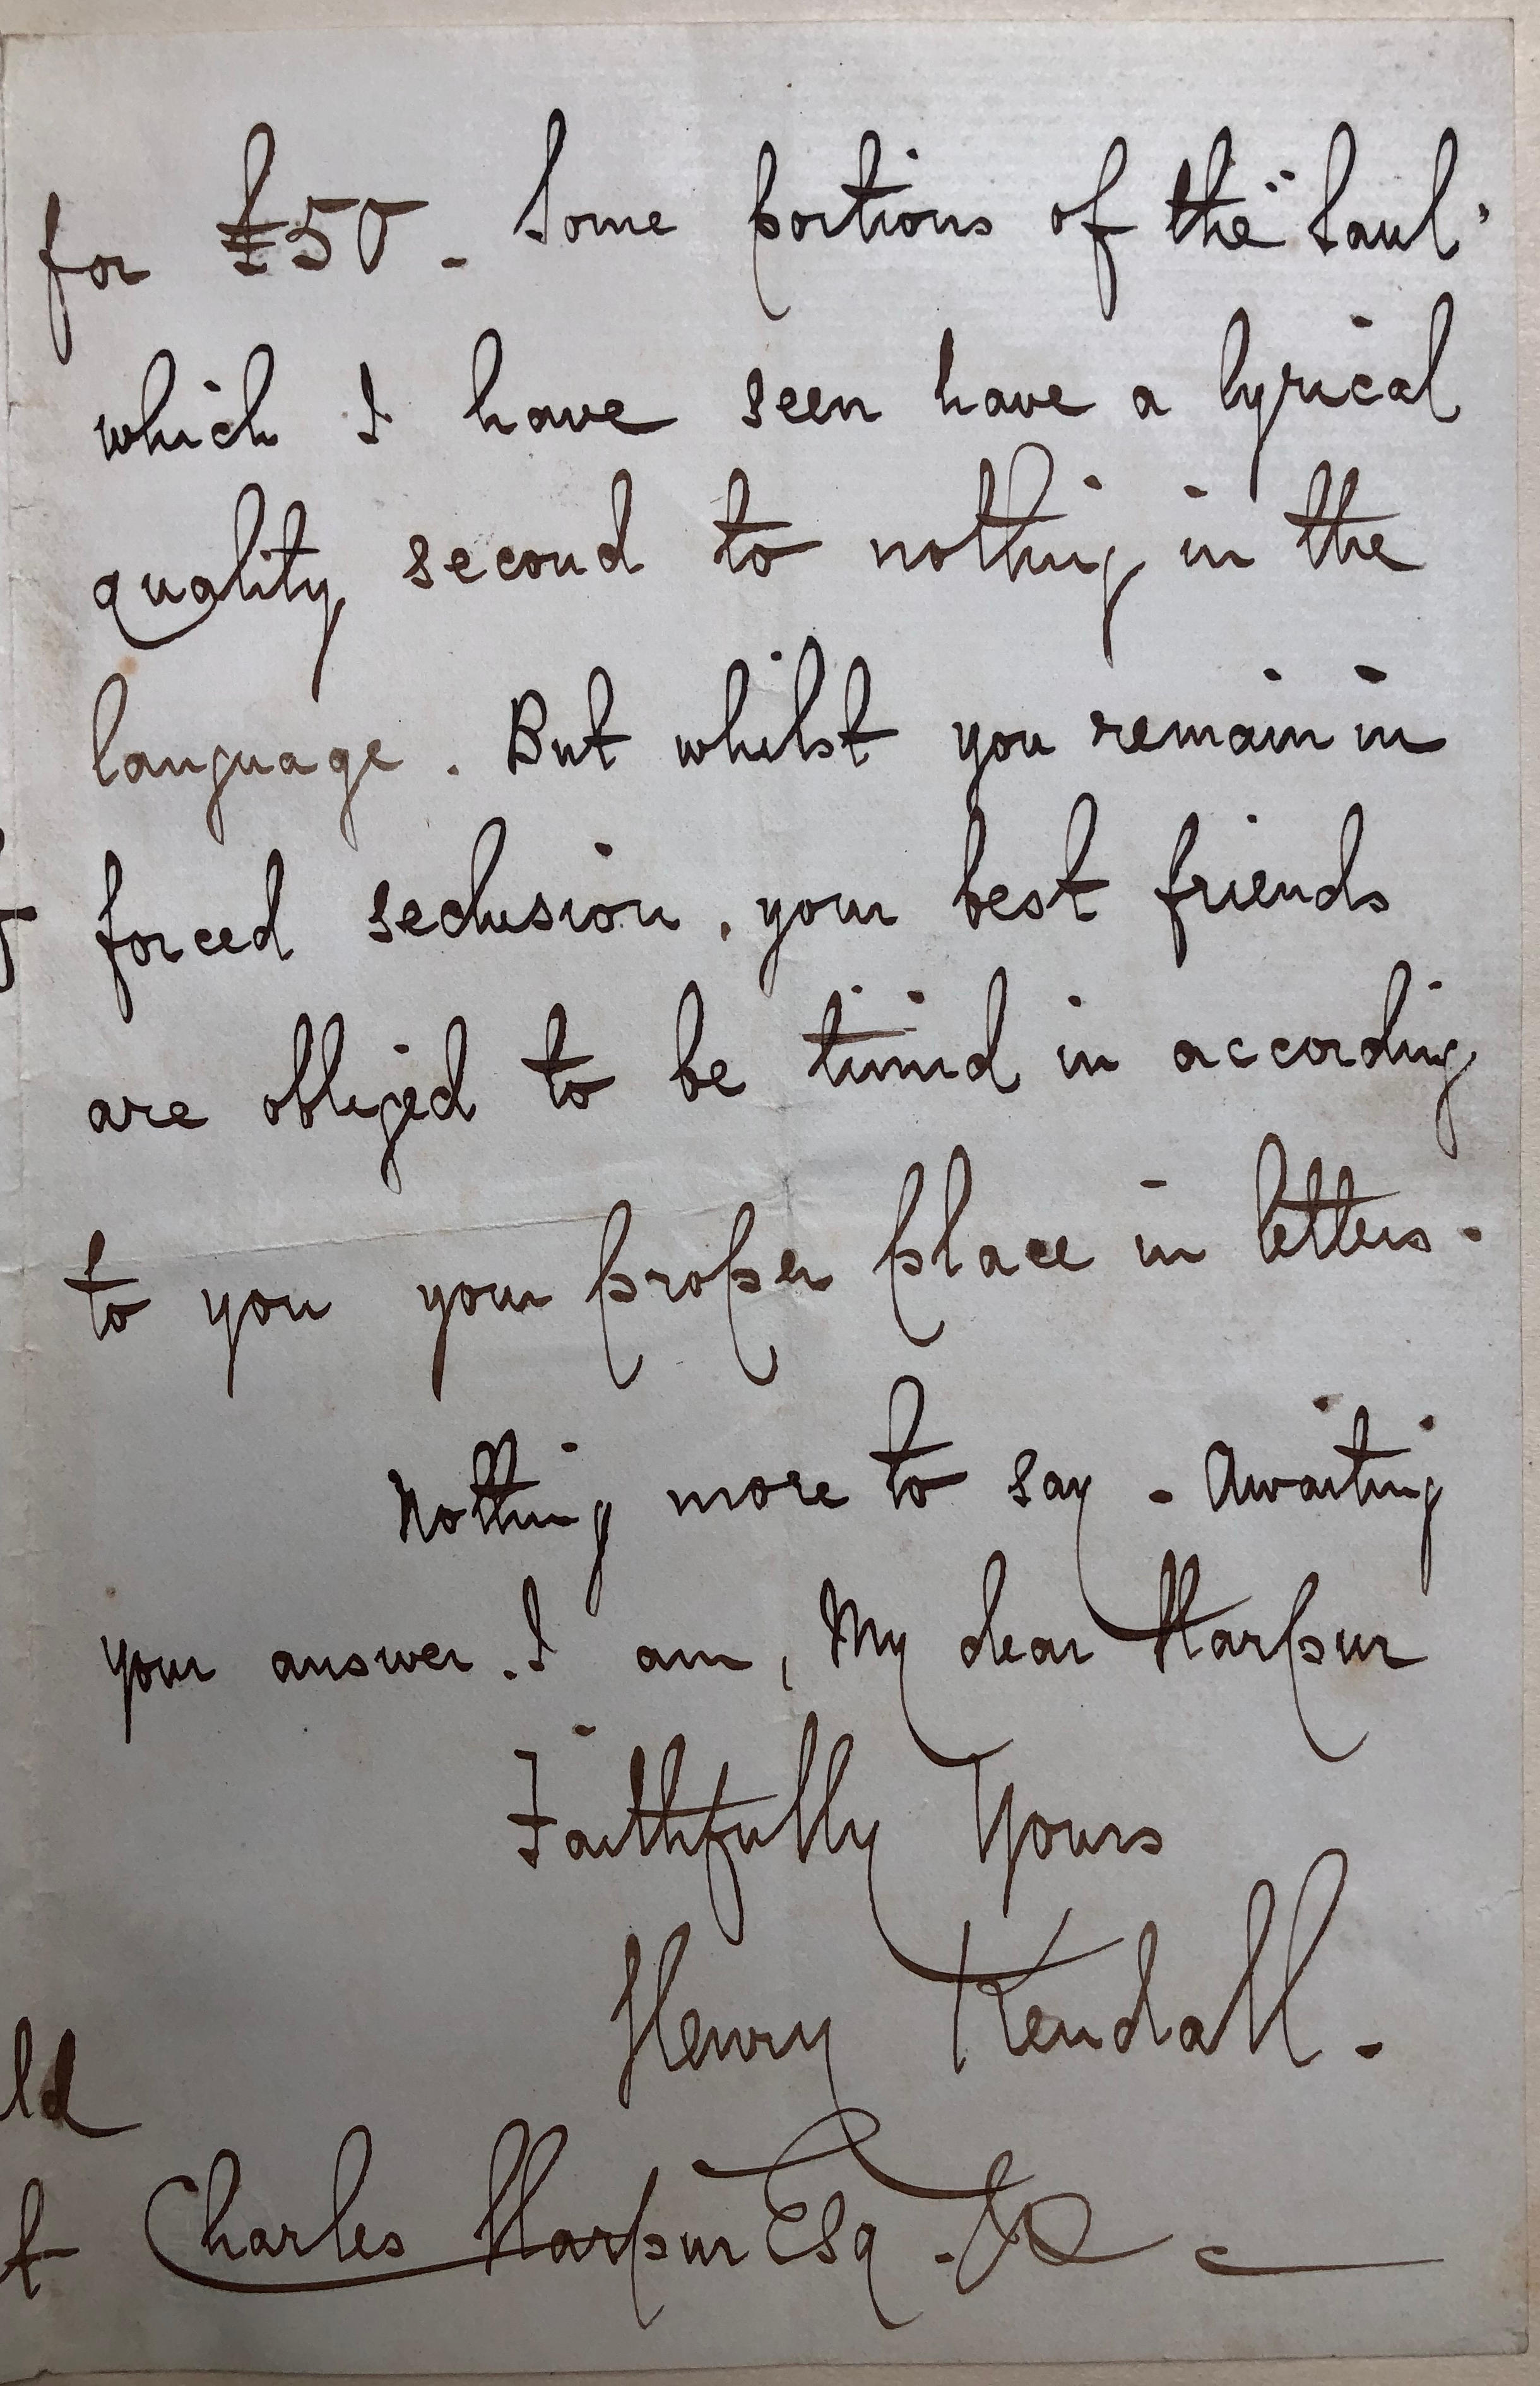 for £50. Some portions of the "Saul"
which I have seen have a lyrical
quality second to nothing in the
language. But whilst you remain in
forced seclusion, your best friends
are obliged to be timid in according
to you your proper place in letters.
Nothing more to say. Awaiting
your answer. I am, My dear Harpur
Faithfully Yours
Henry Kendall.
ld
Charles Harpur Esq. &c